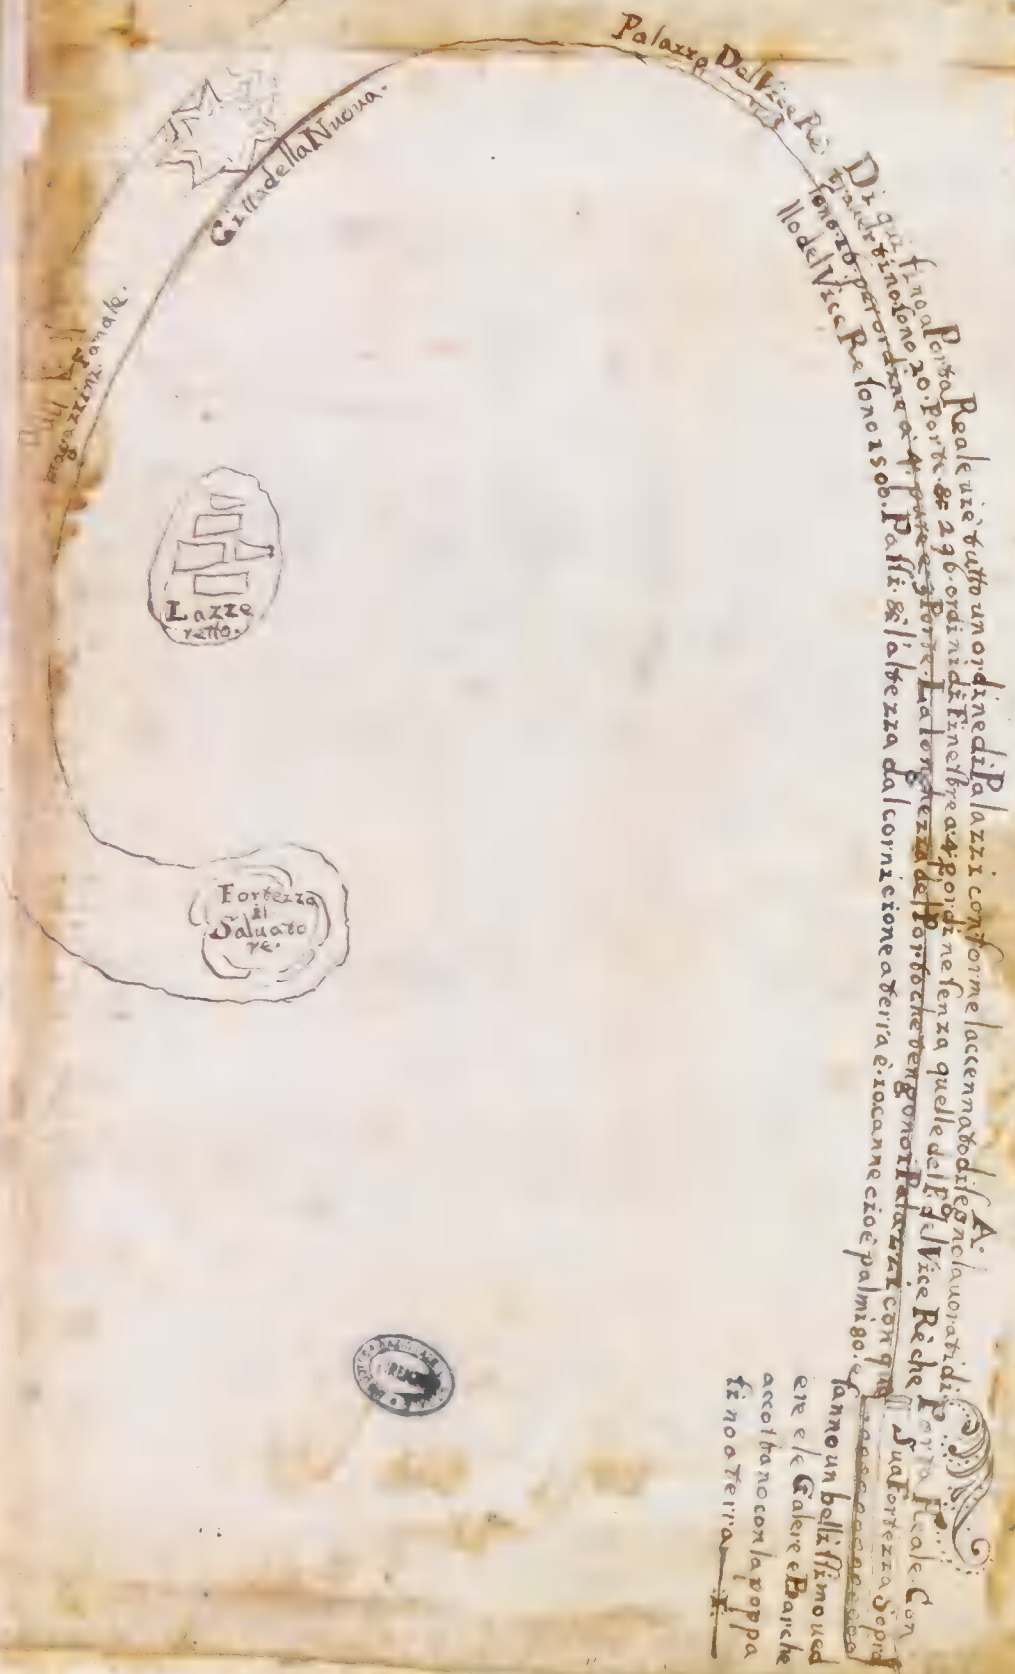 Palazzo Del Vice Rè
Cittadella Nuoua.
magazzini. Fanale.
Lazze
retto.
Fortezza
il
Saluato
re.
Di qui fino a Porta Reale uiè tutto un ordine di Palazzi conforme laccennato disegno lauorati di
trauertino sono 20. Porte. & 296. ordini di finestre a 4. p ordine senza quelle del P. del Vice Rè che
sono 28. per ordine à 4. pure e 3 Porte. La longhezza del Porto che tengono i Palazzi con que
llo del Vice Re sono 1500. Passi. & l'altezza dal cornicione a terra è. 10. canne cioè palmi 80. e
fanno un bellissimo ued
ere e le Galere e Barche
accostano con la poppa
fino a terra
A.
Porta Reale. Con
Sua Fortezza Sopra